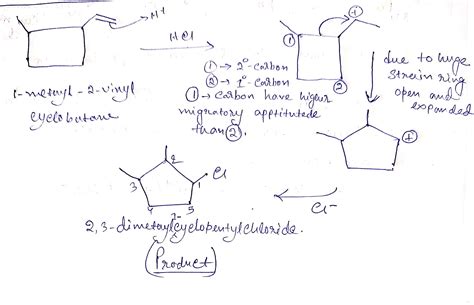 H+
HCl
+
1
2
① → 2°-carbon
② → 1°-carbon
① → carbon have higher
migratory apptitutede
than ②.
1-metayl-2-vinyl
cyclobutane
due to huge
strain ring
open and
expanded
+
Cl
2
3
1
4
5
Cl-
2,3-dimetaylcyclopentylchloride.
(Product)